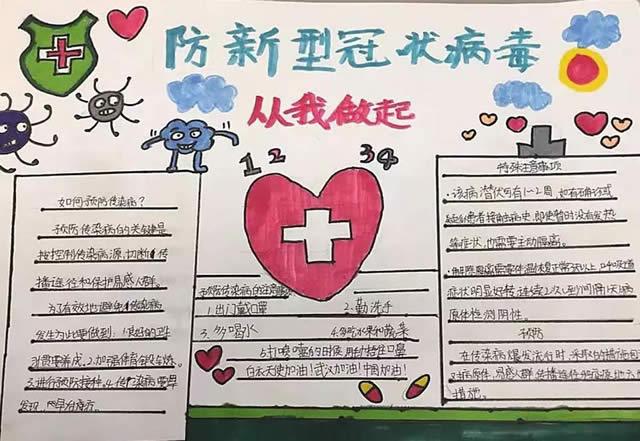 防新型冠状病毒
从我做起
1 2 3 4
如何预防传染病?
预防传染病的关键是
按控制传染病源,切断传
播途径和保护易感人群。
为了有效地避免传染病
发生为此要做到:1.良好的卫
习惯养成,2.加强体育锻炼,
3.进行预防接种,4.传染病要早
发现,
预防传染病的注意
1.出门戴口罩 2.勤洗手
3.多喝水 4.多吃水果和蔬菜
5.打喷嚏的时候,用 口鼻
白衣天使加油!武汉加油!中国加油!
特殊注意事项
·该病潜伏可有1~2周,如有确诊或
患者接触病史,即使暂时没有发热
等症状,也需要主动隔离。
·解除隔离需要体温恢复正常3天以上,
症状明显好转,连续2次(间隔1天)病
原体检测阴性。
预防
在传染病爆发流行时,采取的措施包
措施。